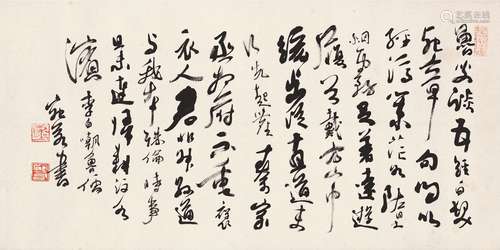 魯叟談五經白髮
死章句問以
經濟策茫如墜
煙霧足著遠遊
履首戴方山巾
緩步從直道未
行先起塵秦家
丞相府不重褒
衣人君非叔孫通
與我本殊倫時事
且未達歸耕汶水
濱 李白嘲魯儒
書